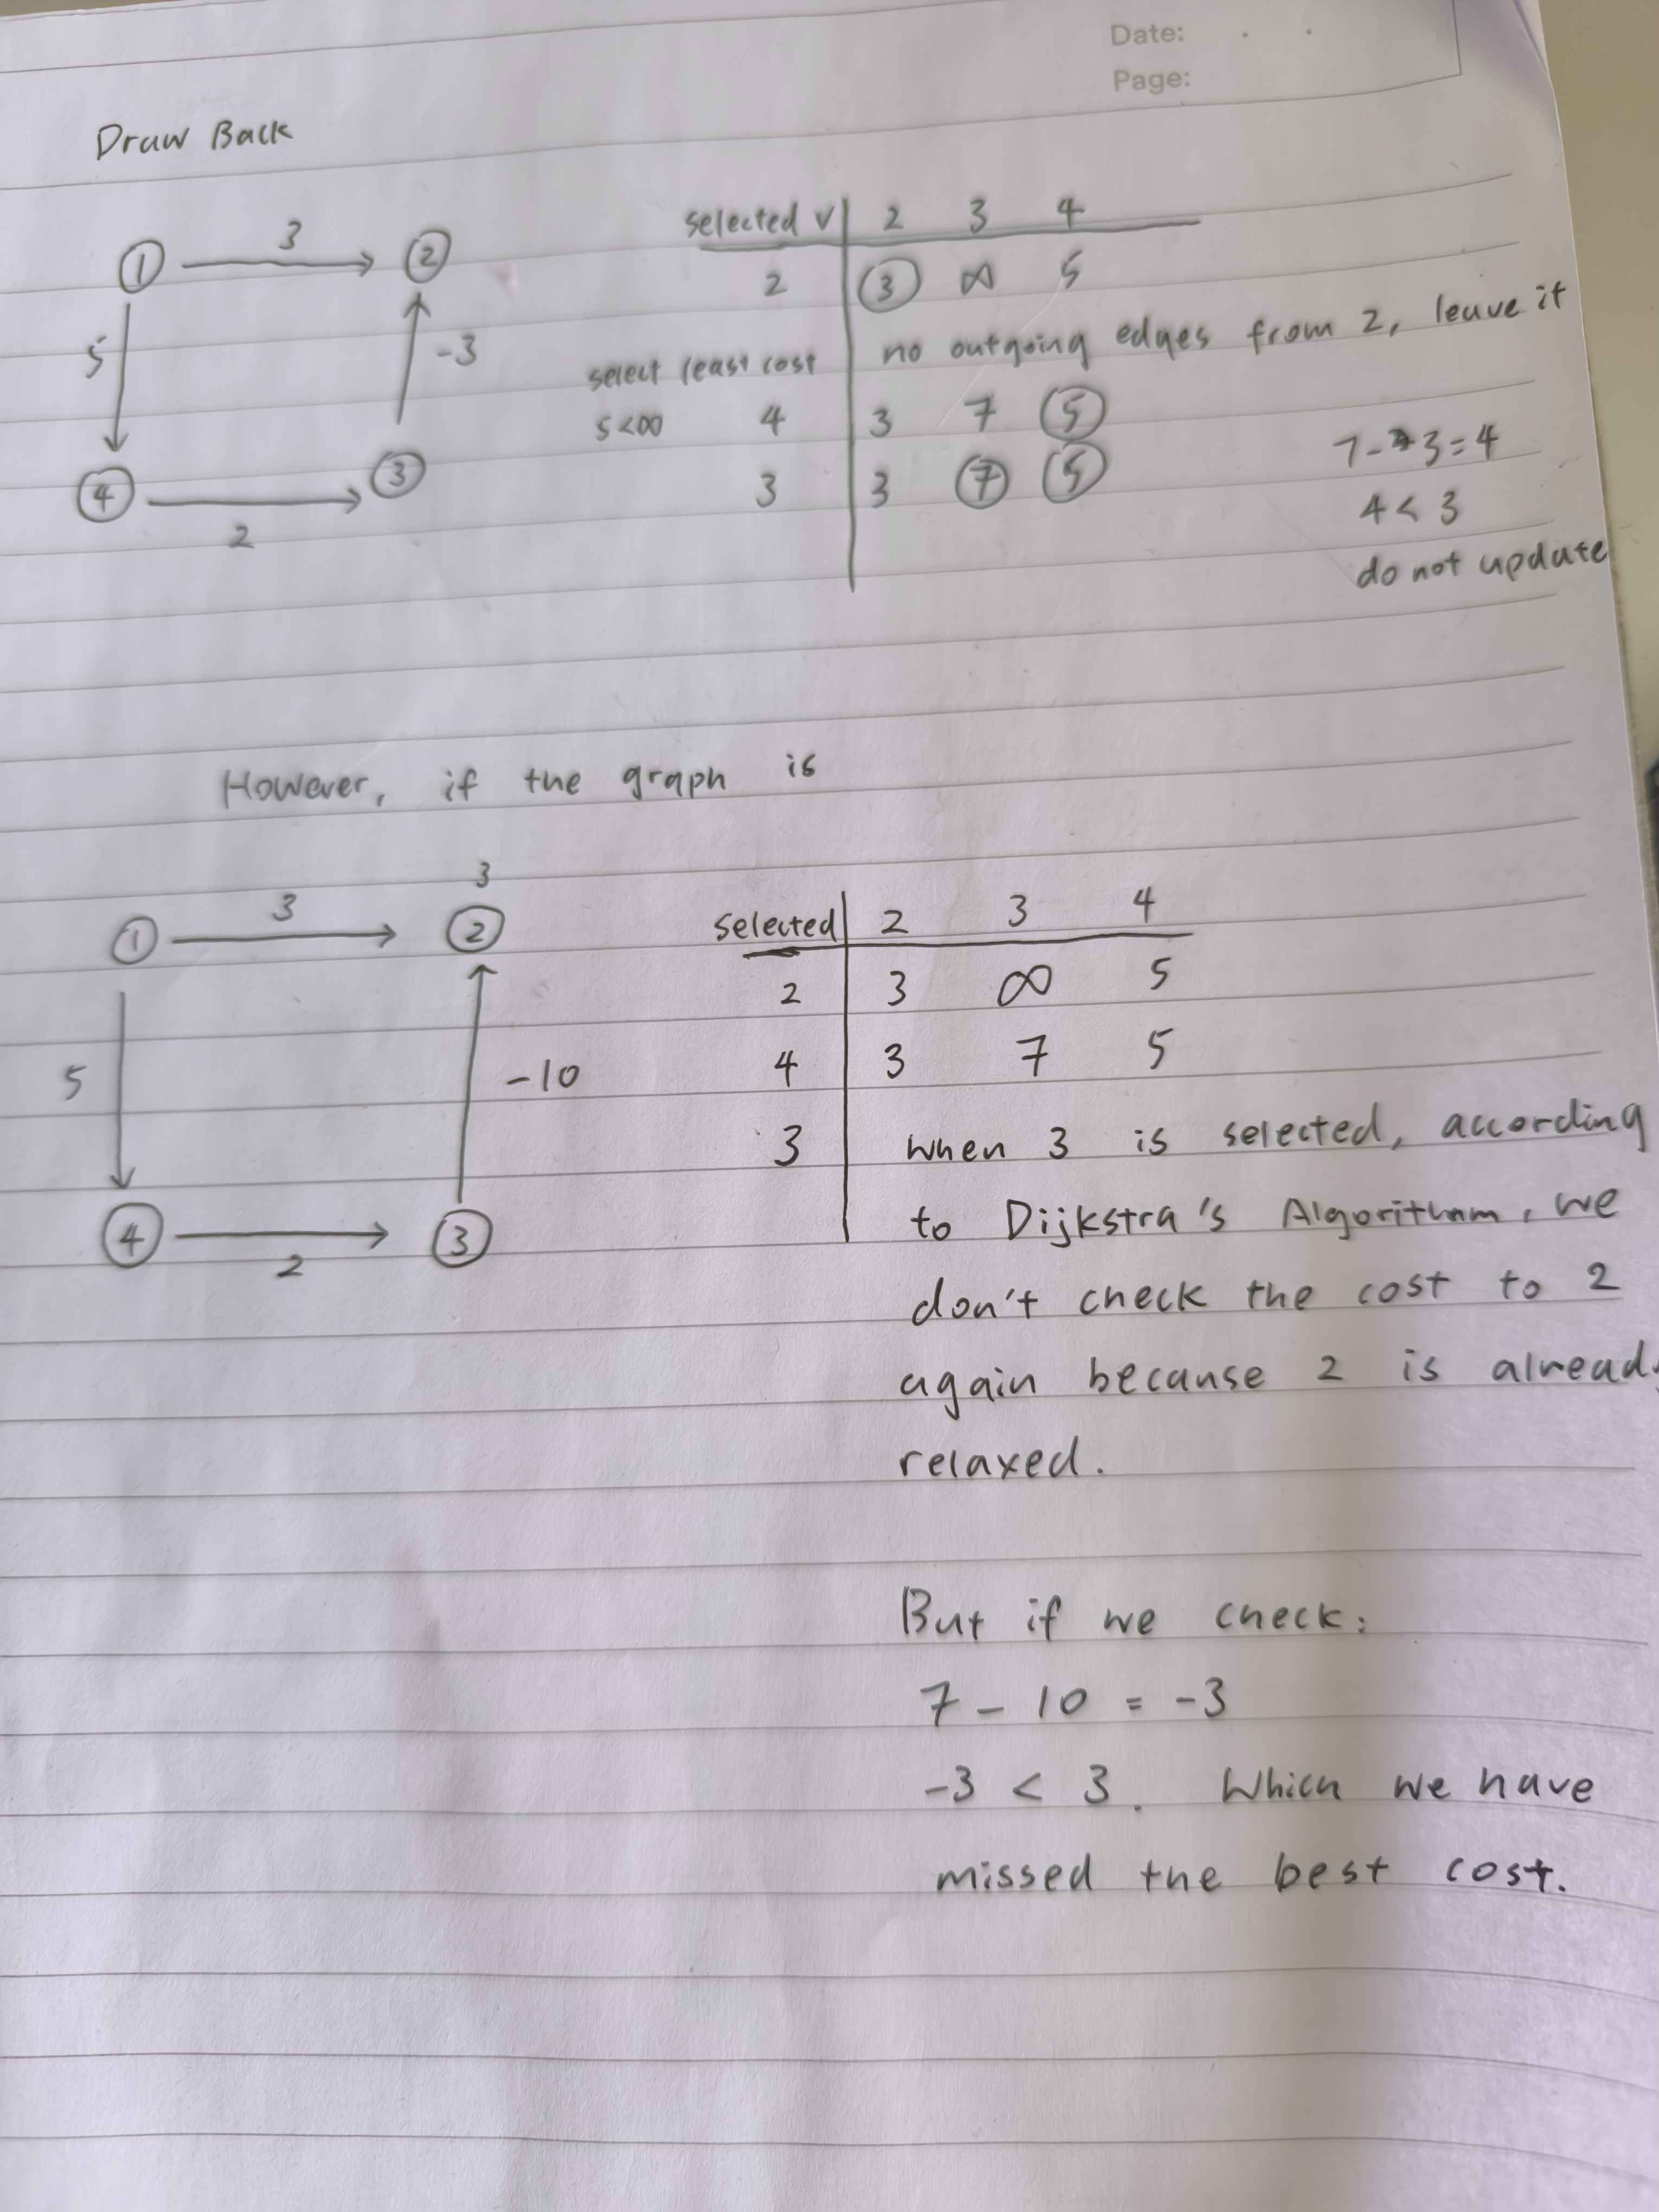 Date: . .
Page:
Draw Back
1 3 2
selected v 2 3 4
2 3 ∞ 5
5 -3
select least cost no outgoing edges from 2, leave it
5<∞ 4 3 7 5
4 2 3
3 3 7 5
7-3=4
4 < 3
do not update
However, if the graph is
3
1 3 2
selected 2 3 4
2 3 ∞ 5
5 -10
4 3 7 5
4 2 3
3 when 3 is selected, according
to Dijkstra's Algoritham, we
don't check the cost to 2
again because 2 is already
relaxed.
But if we check:
7 - 10 = -3
-3 < 3. Which we have
missed the best cost.